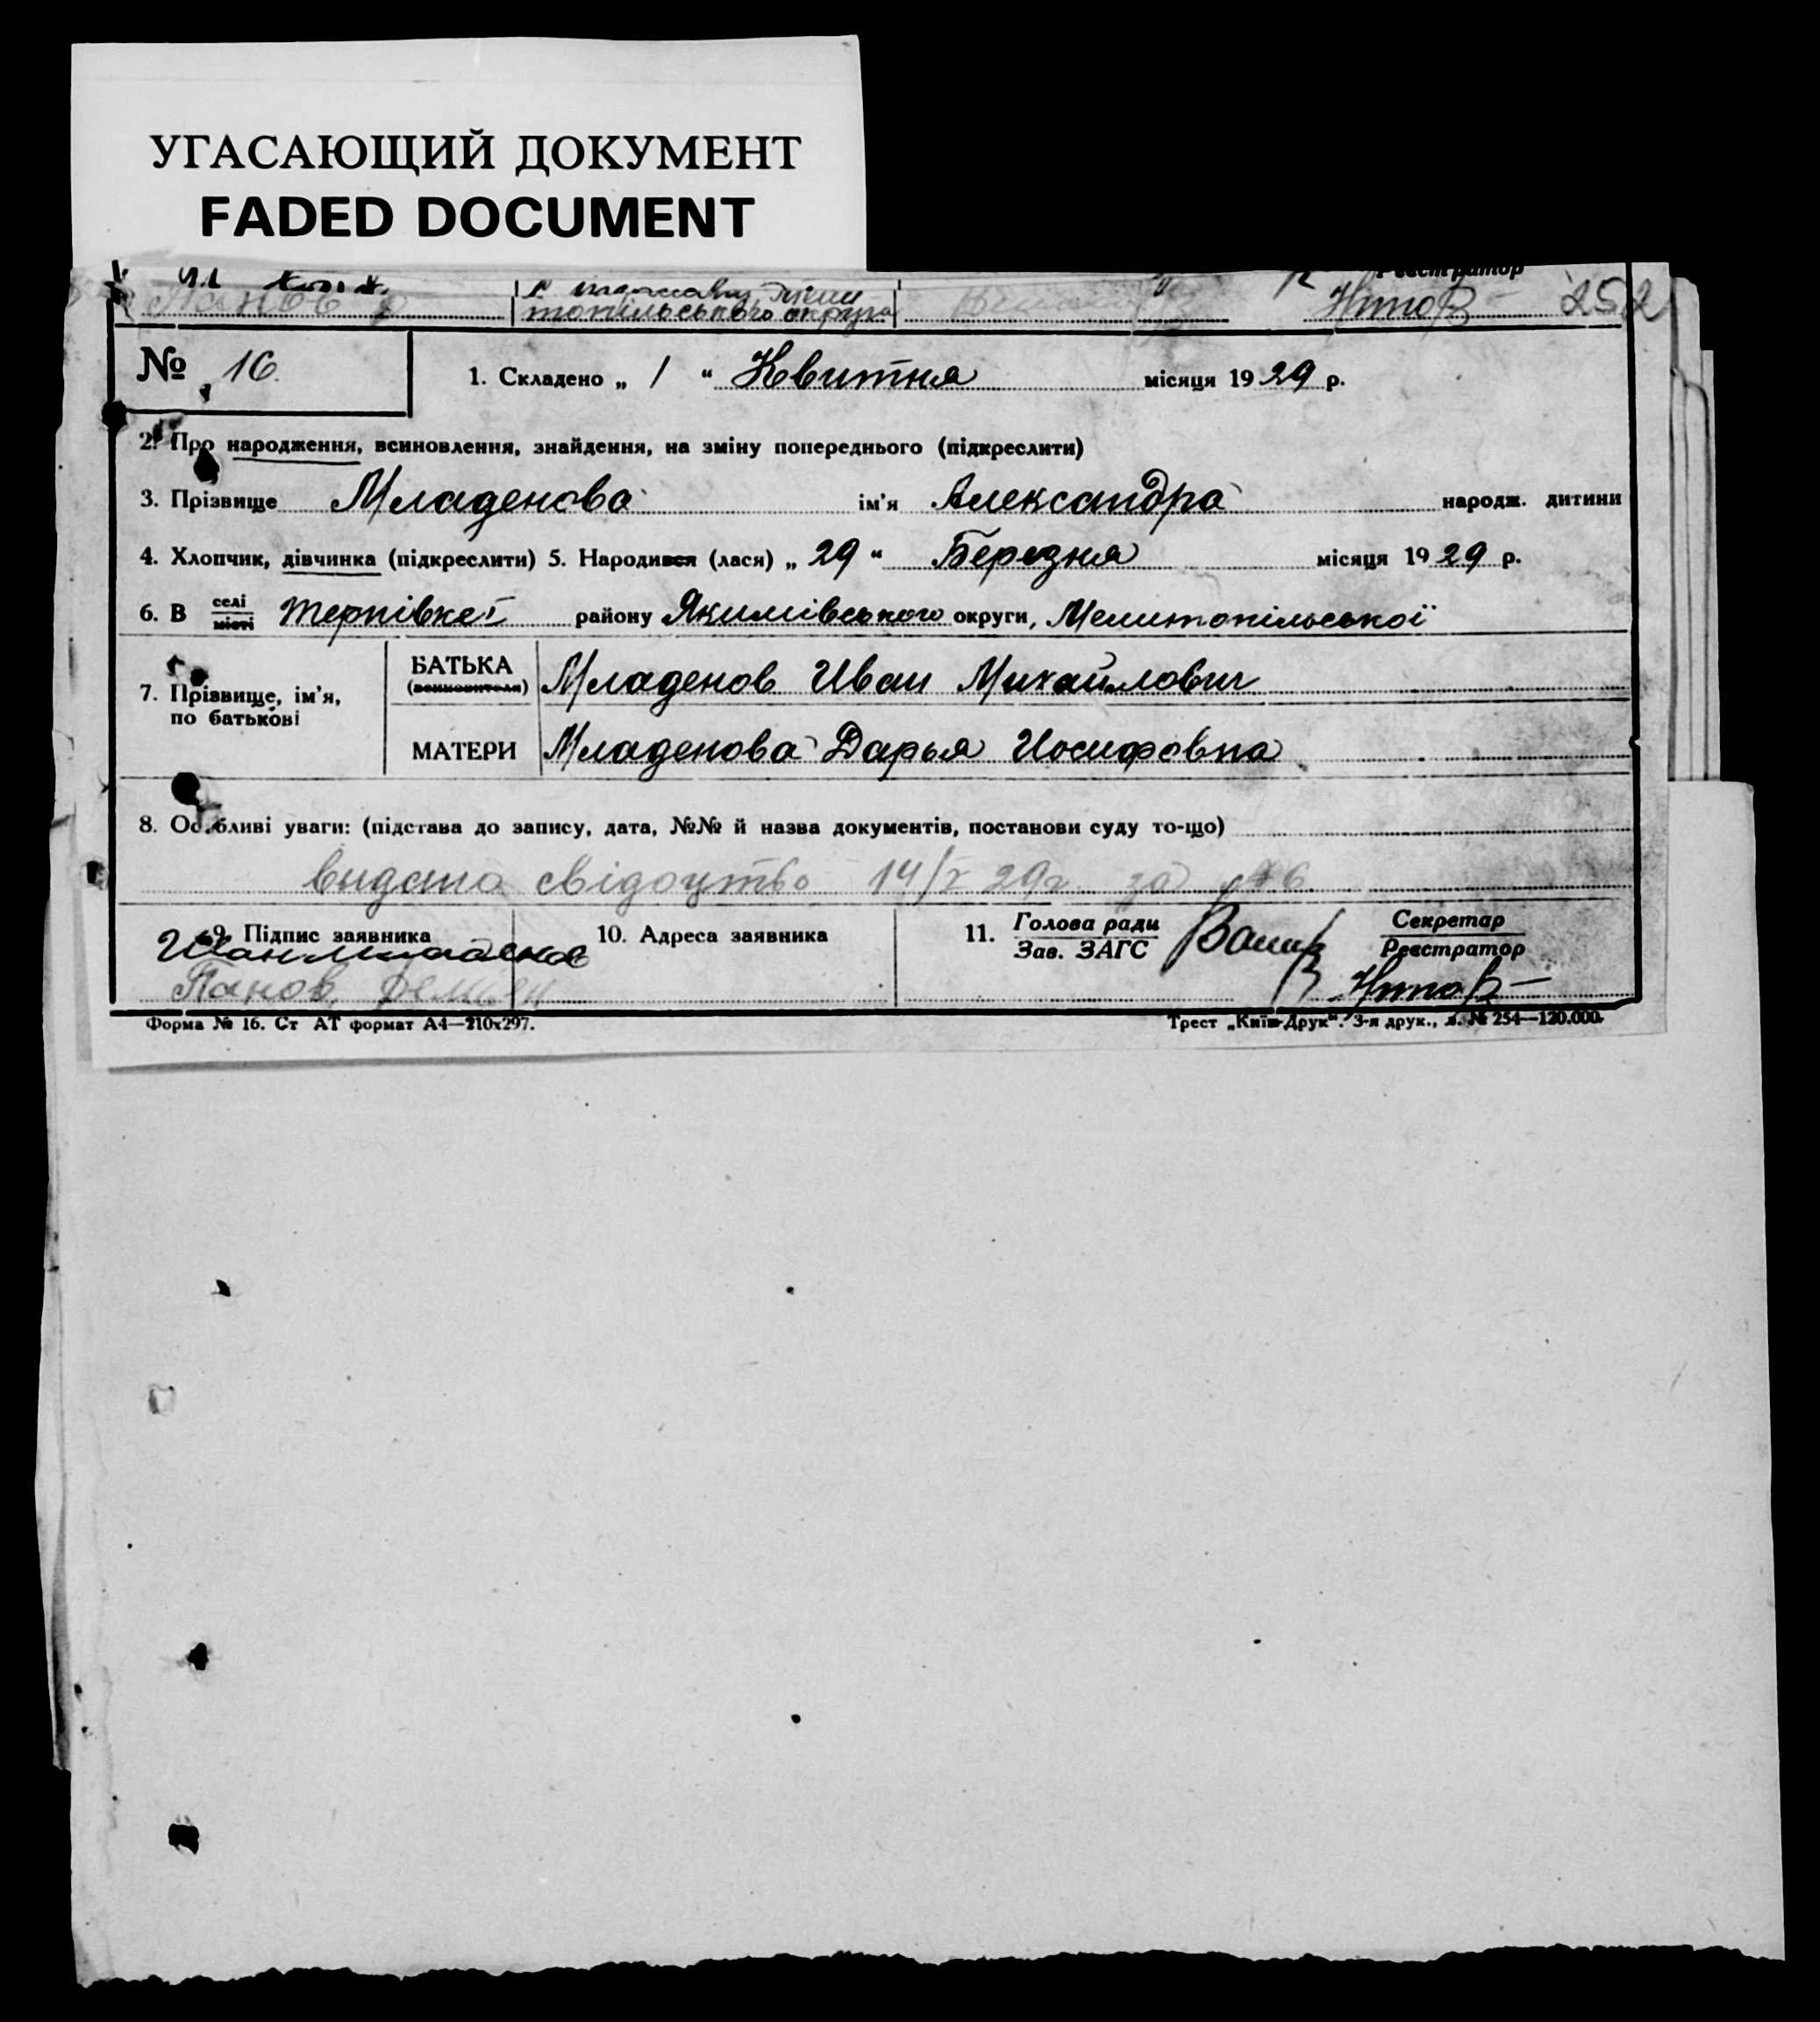 УГАСАЮЩИЙ ДОКУМЕНТ
FADED DOCUMENT
Реєстратор
252
топільського округа
№ 16.
1. Складено „ 1 “ Квитня місяця 1929 р.
2. Про народження, всиновлення, знайдення, на зміну попереднього (підкреслити)
3. Прізвище Младенова ім'я Александра народж. дитини
4. Хлопчик, дівчинка (підкреслити) 5. Народився (лася) „ 29 “ Березня місяця 1929 р.
6. В селі місті Терпівкеі району Якимівського округи, Мелитопільської
7. Прізвище, ім'я, по батькові
БАТЬКА (всиновителя) Младенов Иван Михайлович
МАТЕРИ Младенова Дарья Иосифовна
8. Особливі уваги: (підстава до запису, дата, №№ й назва документів, постанови суду то-що)
видано свідоцтво 14/X 29г. за №6
9. Підпис заявника 10. Адреса заявника 11. Голова ради Зав. ЗАГС Секретар Реєстратор
Иван Младенов
Панов
Форма № 16. Ст АТ формат А4—210х297.
Трест „Київ-Друк“. 3-я друк., з. № 254—120.000.